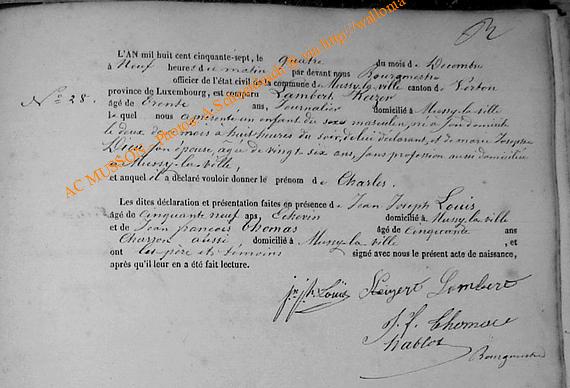 N° 28.
L'AN mil huit cent cinquante-sept, le quatre du mois de Décembre
à Neuf heures du matin par devant nous Bourgmestre
officier de l'état civil de la commune de Mussy-la-ville canton de Virton
province de Luxembourg, est comparu Lambert
âgé de trente ans, Journalier domicilié à Mussy-la-ville
lequel nous a présenté un enfant du sexe masculin, né à son domicile
le deux de ce mois à huit heures du soir, de lui déclarant, et de marie Josephe
son épouse, âgée de vingt six ans, sans profession aussi domiciliée
à Mussy-la-ville,
et auquel il a déclaré vouloir donner le prénom de Charles.
Les dites déclaration et présentation faites en présence de Jean Joseph Louis
âgé de Cinquante neuf ans, Echevin domicilié à Mussy-la-ville
et de Jean francois Thomas âgé de Cinquante ans
Charron aussi domicilié à Mussy-la-ville, et
ont les père et témoins signé avec nous le présent acte de naissance,
après qu'il leur en a été fait lecture.
jn jh Louis Lambert
J. f. thomas
Bourgmestre
AC MUSSON - Photo © A. via http://wallonia